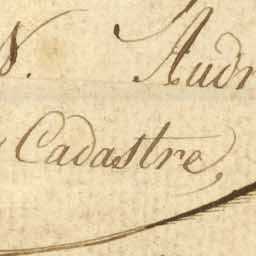 N. Audr
Cadastre,